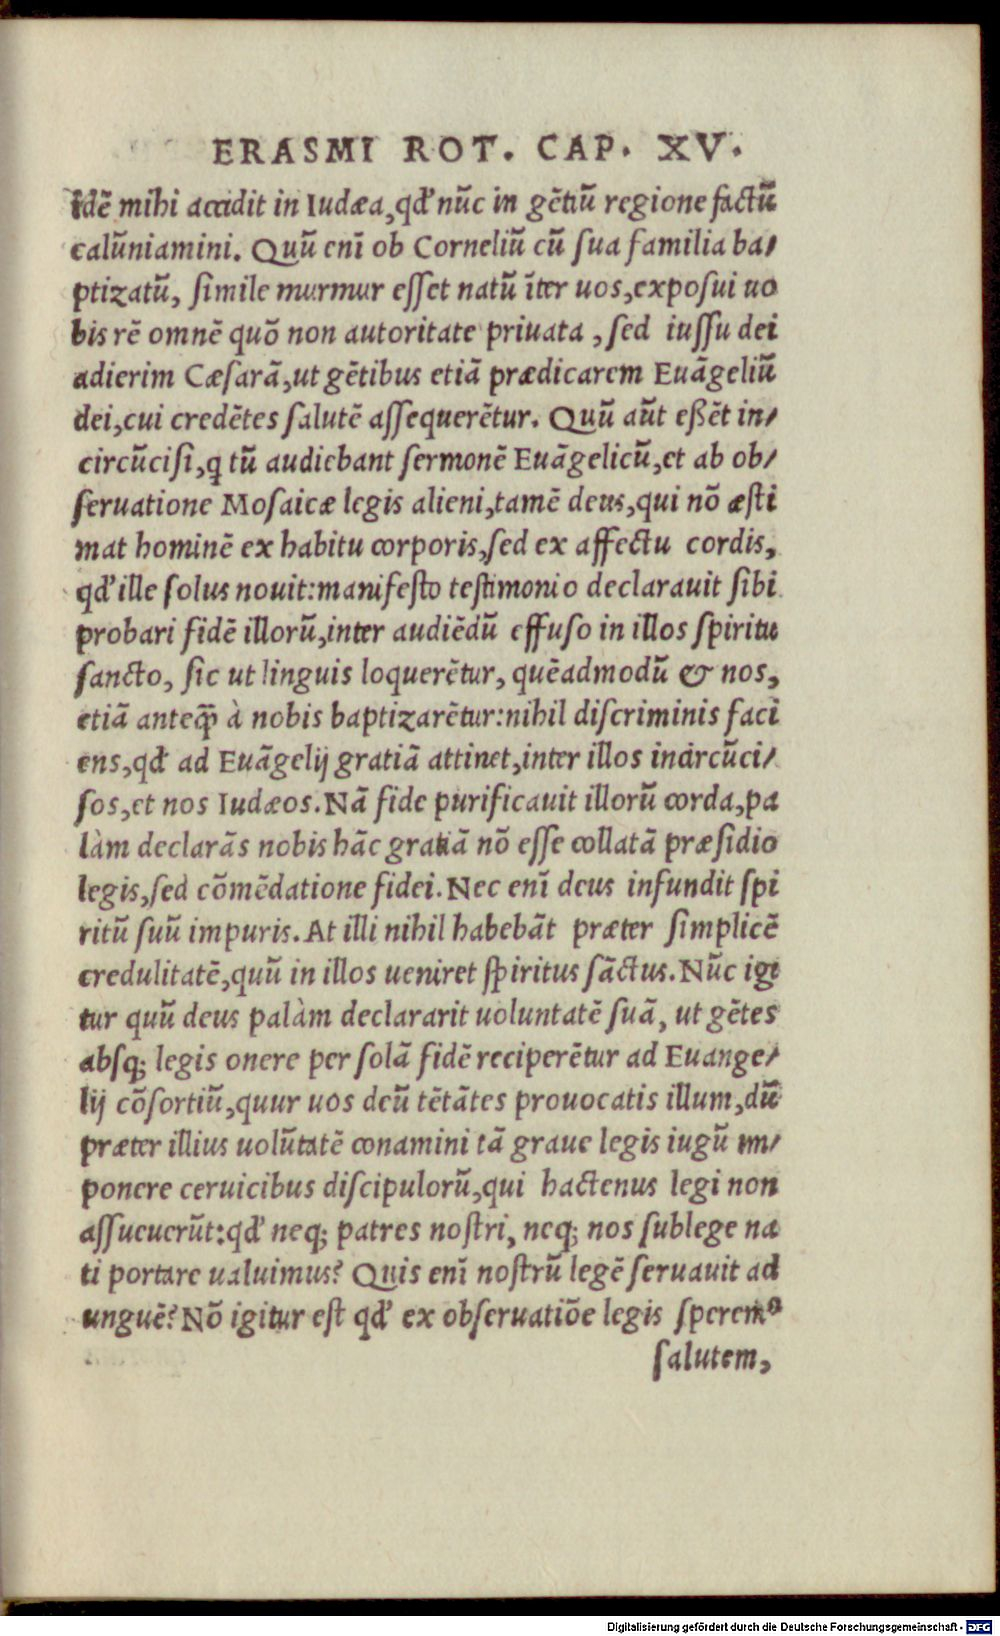 ERASMI ROT. CAP. XV.
idē mihi accidit in Iudæa,qđ nūc in gētiū regione factū
calūniamini. Quū enī ob Corneliū cū sua familia ba/
ptizatū, simile murmur esset natū īter uos,exposui uo
bis rē omnē quō non autoritate priuata , sed iussu dei
adierim Cæsarā,ut gētibus etiā prædicarem Euāgeliū
dei,cui credētes salutē assequerētur. Quū aūt eßēt in/
circūcisi,q tū audiebant sermonē Euāgelicū,et ab ob/
seruatione Mosaicæ legis alieni,tamē deus,qui nō æsti
mat hominē ex habitu corporis,sed ex affectu cordis,
qđ ille solus nouit:manifesto testimonio declarauit sibi
probari fidē illorū,inter audiēdū effuso in illos spiritu
sancto, sic ut linguis loquerētur, quēadmodū & nos,
etiā anteq̄ à nobis baptizarētur:nihil discriminis faci
ens,qđ ad Euāgelij gratiā attinet,inter illos incircūci/
sos,et nos Iudæos. Nā fide purificauit illorū corda,pa
làm declarās nobis hāc gratiā nō esse collatā præsidio
legis,sed cōmēdatione fidei. Nec enī deus infundit spi
ritū suū impuris. At illi nihil habebāt præter simplicē
credulitatē,quū in illos ueniret spiritus sāctus. Nūc igi
tur quū deus palàm declararit uoluntatē suā, ut gētes
absq; legis onere per solā fidē reciperētur ad Euange/
lij cōsortiū,quur uos deū tētātes prouocatis illum,dū
præter illius uolūtatē conamini tā graue legis iugū im/
ponere ceruicibus discipulorū,qui hactenus legi non
assueuerūt:qđ neq; patres nostri, neq; nos sub lege na
ti portare ualuimus? Quis enī nostrū legē seruauit ad
unguē? Nō igitur est qđ ex obseruatiōe legis sperem⁹
salutem,
Digitalisierung gefördert durch die Deutsche Forschungsgemeinschaft - DFG